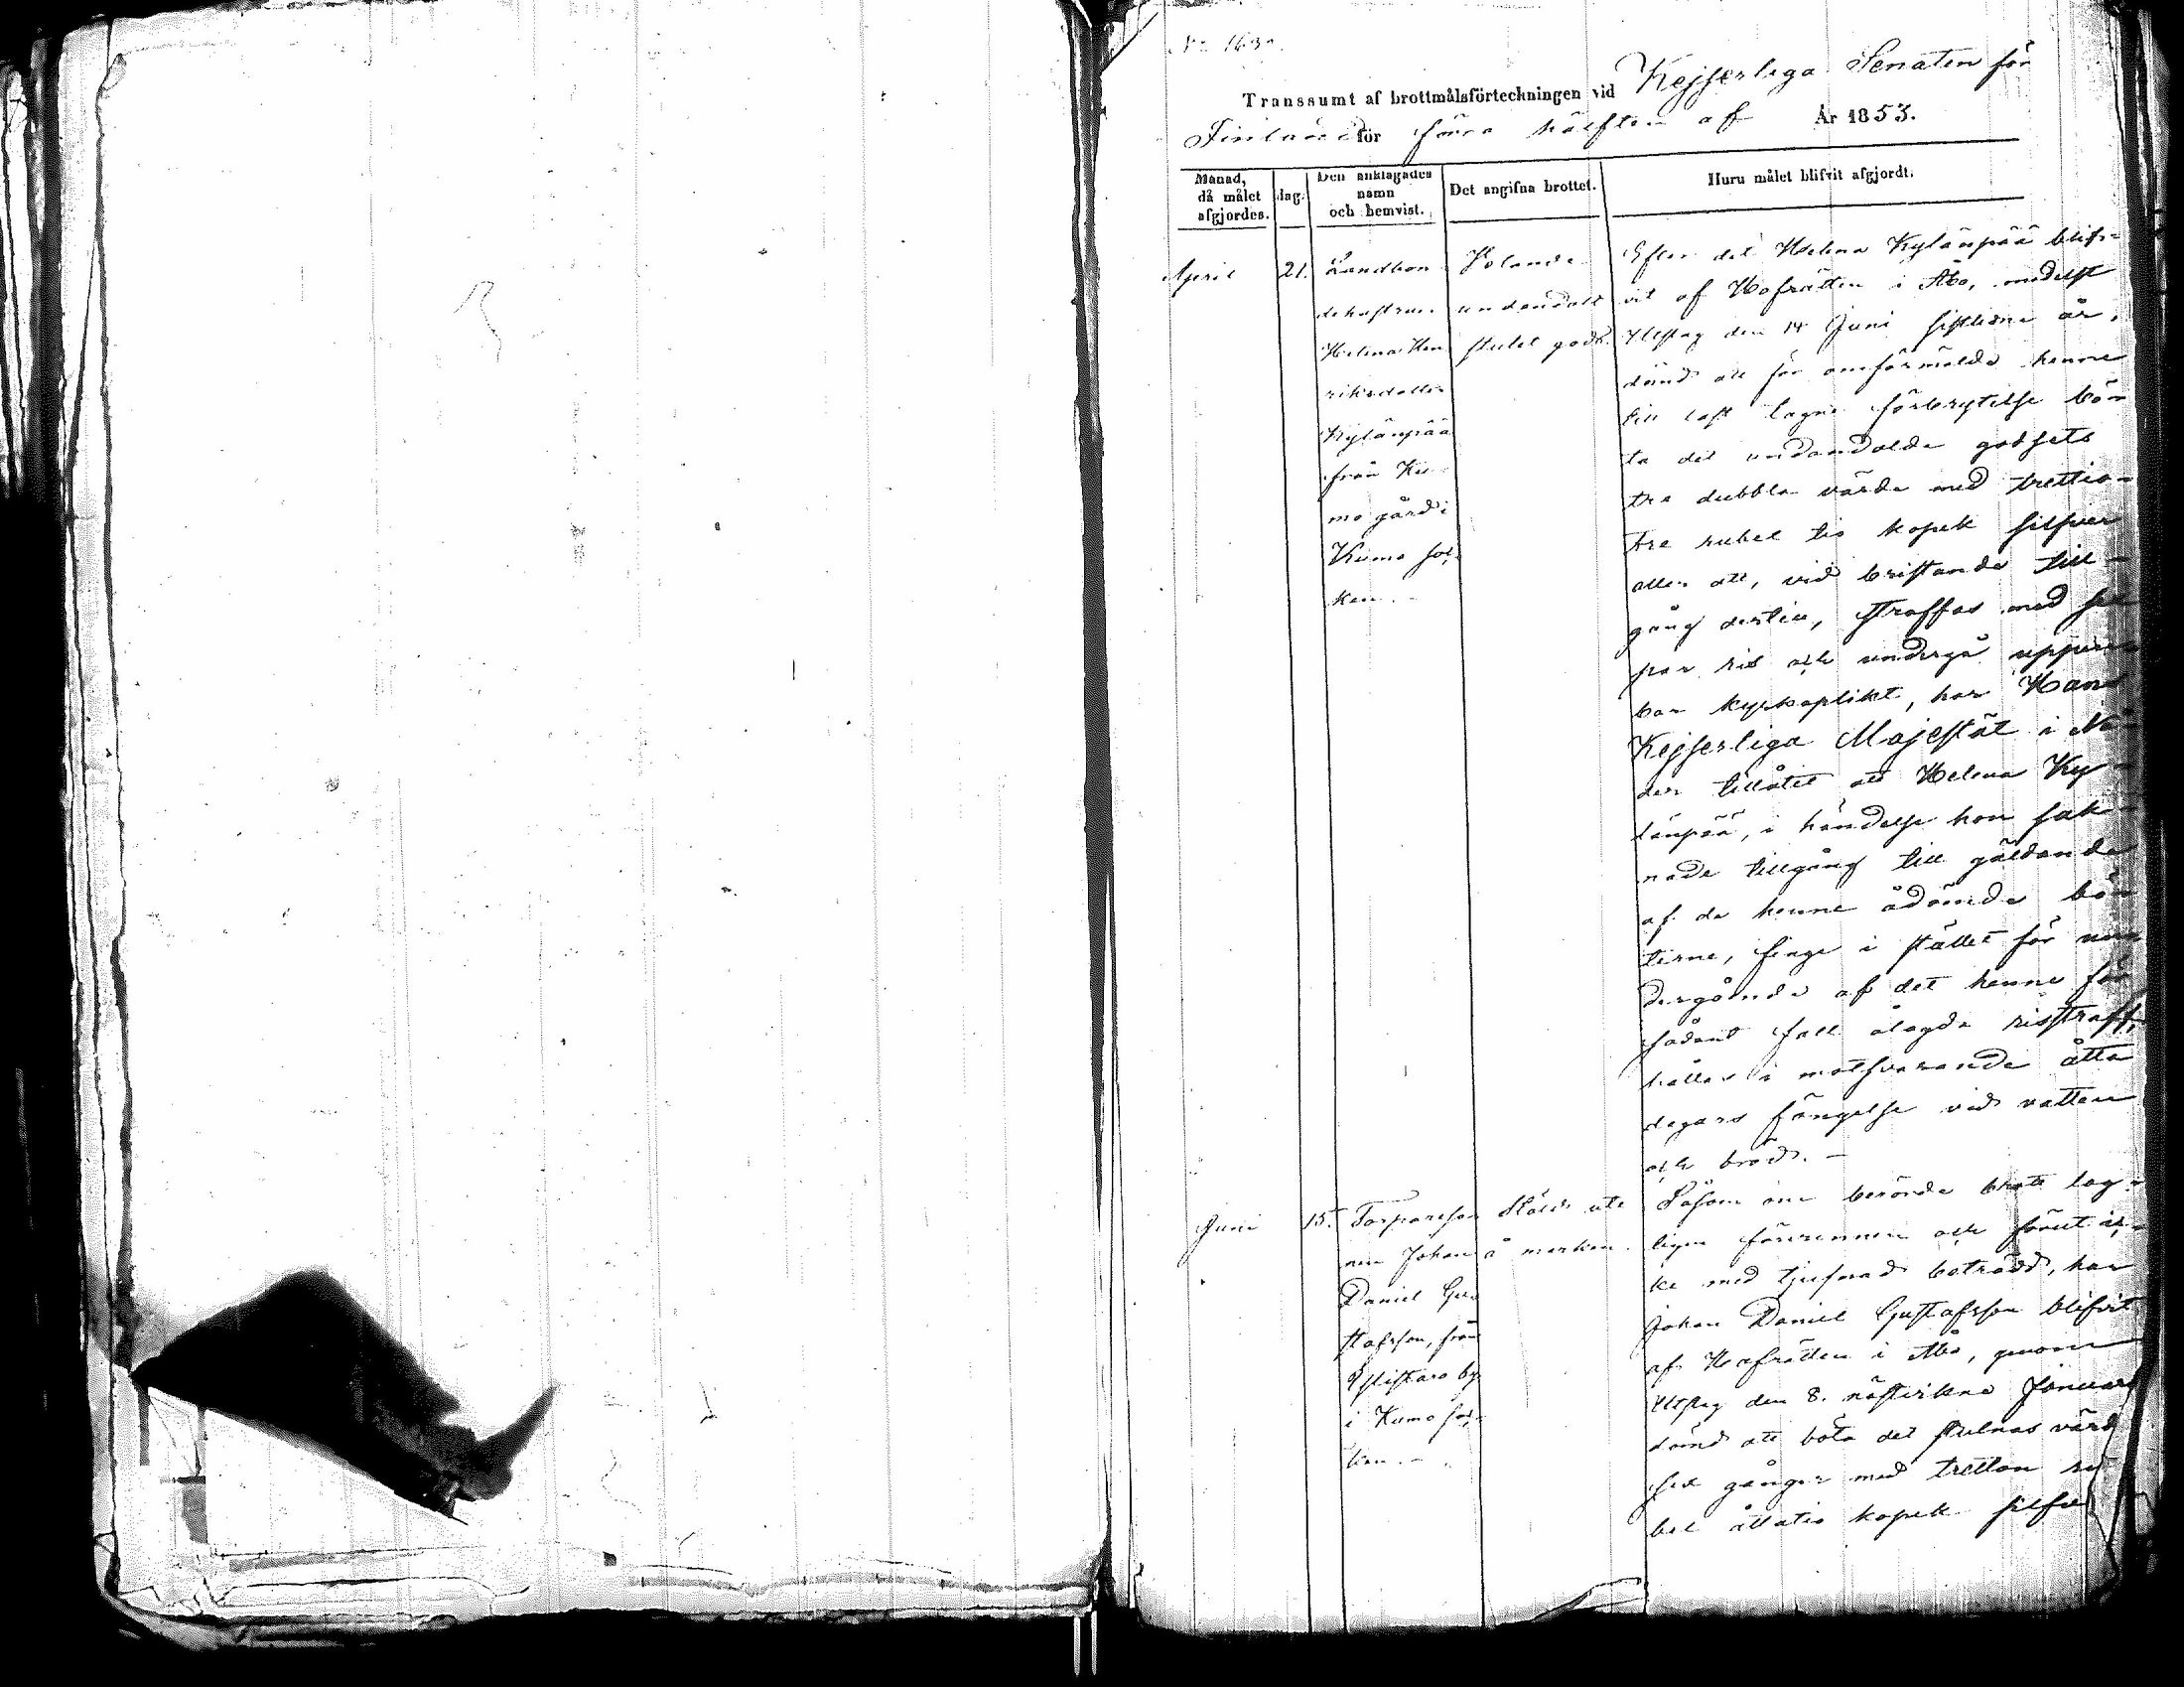 Transsumt af brottmålsförteckningen vid Kejserliga Senaten för
Finland för förra hälften af År 1853.
Månad, då målet afgjordes.
dag.
Den anklagades namn och hemvist.
Det angifna brottet.
Huru målet blifvit afgjordt.
April
21.
Landbon-
dehustrun
Helena Hen
riksdotter
Kylänpää
från Ku-
mo gård i
Kumo soc-
ken. -
undandolt
stulet gods.
Efter det Helena Kylänpää blif-
vit af Hofrätten i Åbo, medelst
Utslag den 14 Juni sistlidne år,
dömd att för omförmälda henne
till last lagne förbrytelse böta
det undandolda godsets
tre dubbla värde med trettio-
tre rubel tio kopek silfver
eller att, vid bristande till-
gång dertill, straffas med sex
par ris och undergå uppen-
bar kyrkoplikt, har Hans
Kejserliga Majestät i Nå-
der tillåtit att Helena Ky-
länpää, i händelse hon sak-
nade tillgång till gäldande
af de henne ådömda bö-
terne, finge i stället för un-
dergående af det henne för
sådant fall ålagda risstraff,
hållas i motsvarande åtta
dagars fängelse vid vatten
och bröd. -
Juni
15.
Torpareso-
nen Johan
Daniel Gu-
stafsson, från
by
i Kumo soc-
ken. -
Stöld ute
å marken.
Såsom om berörde brott lag-
ligen förvunnen och förut ic-
ke med tjufnad beträdd, har
Johan Daniel Gustafsson blifvit
af Hofrätten i Åbo, genom
Utslag den 8. Januari
dömd att böta det stulnas värde
sex gånger med tretton ru-
bel åttatio kopek silfver